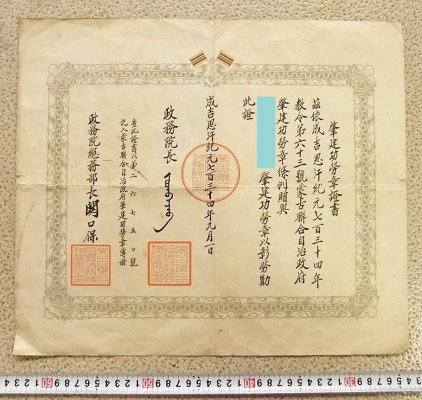 肇建功勞章證書
茲依成吉思汗紀元七百三十四年
教令第六十三號蒙古聯合自治政府
肇建功勞章條例贈與
肇建功勞章以彰勞勩
此證
成吉思汗紀元七百三十四年九月一日
政務院長
查此證書以第二六七五〇號
記入蒙古聯合自治政府肇建功勞章簿冊
政務院總務部長關口保